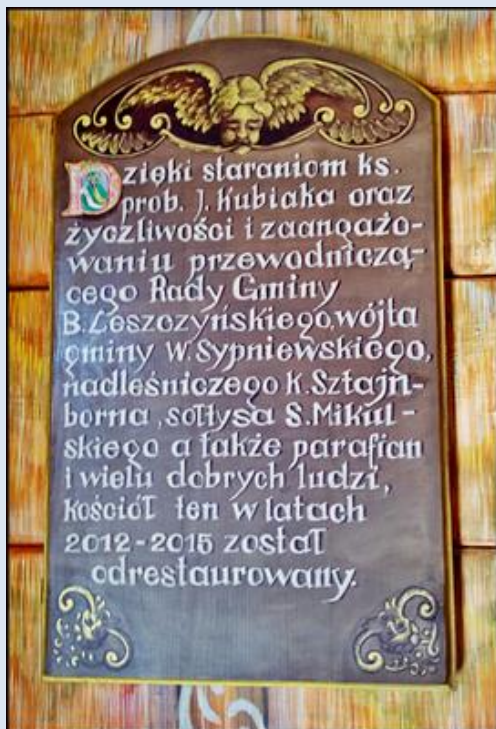 Dzięki staraniom ks.
prob. J. Kubiaka oraz
życzliwości i zaangażo-
waniu przewodniczą-
cego Rady Gminy
B. Leszczyńskiego, wójta
gminy W. Sypniewskiego,
nadleśniczego K. Sztajn-
borna, sołtysa S. Mikul-
skiego a także parafian
i wielu dobrych ludzi,
kościół ten w latach
2012-2015 został
odrestaurowany.